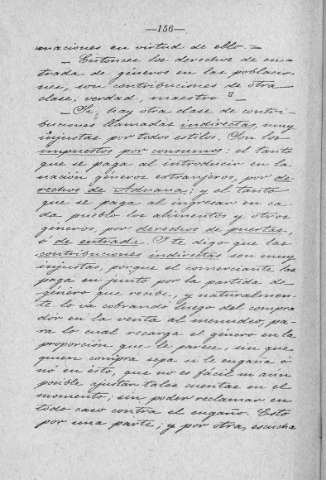 —156—
maciones en virtud de ello. =
— Entonces los derechos de en-
trada de géneros en las poblacio-
nes, son contribuciones de otra
clase, verdad, maestro?
— Sí; hay otra clase de contri-
buciones llamadas indirectas, muy
injustas por todos estilos. Son los
impuestos por consumos: el tanto
que se paga al introducir en la
nación géneros extranjeros, por de
rechos de Aduana; y el tanto
que se paga al ingresar en ca
da pueblo los alimentos y otros
géneros, por derechos de puertas,
ó de entrada. Y te digo que las
contribuciones indirectas son muy
injustas, porque el comerciante las
paga en junto por la partida de
género que recibe, y naturalmen-
te lo va cobrando luego del compra
dor en la venta al menudeo, pa-
ra lo cual recarga el género en la
proporción que le parece, sin que
quien compra sepa si le engaña ó
nó en ésto, que no es fácil ni aun
posible ajustar tales cuentas en el
momento; sin poder reclamar en
todo caso contra el engaño. Esto
por una parte; y por otra, escucha